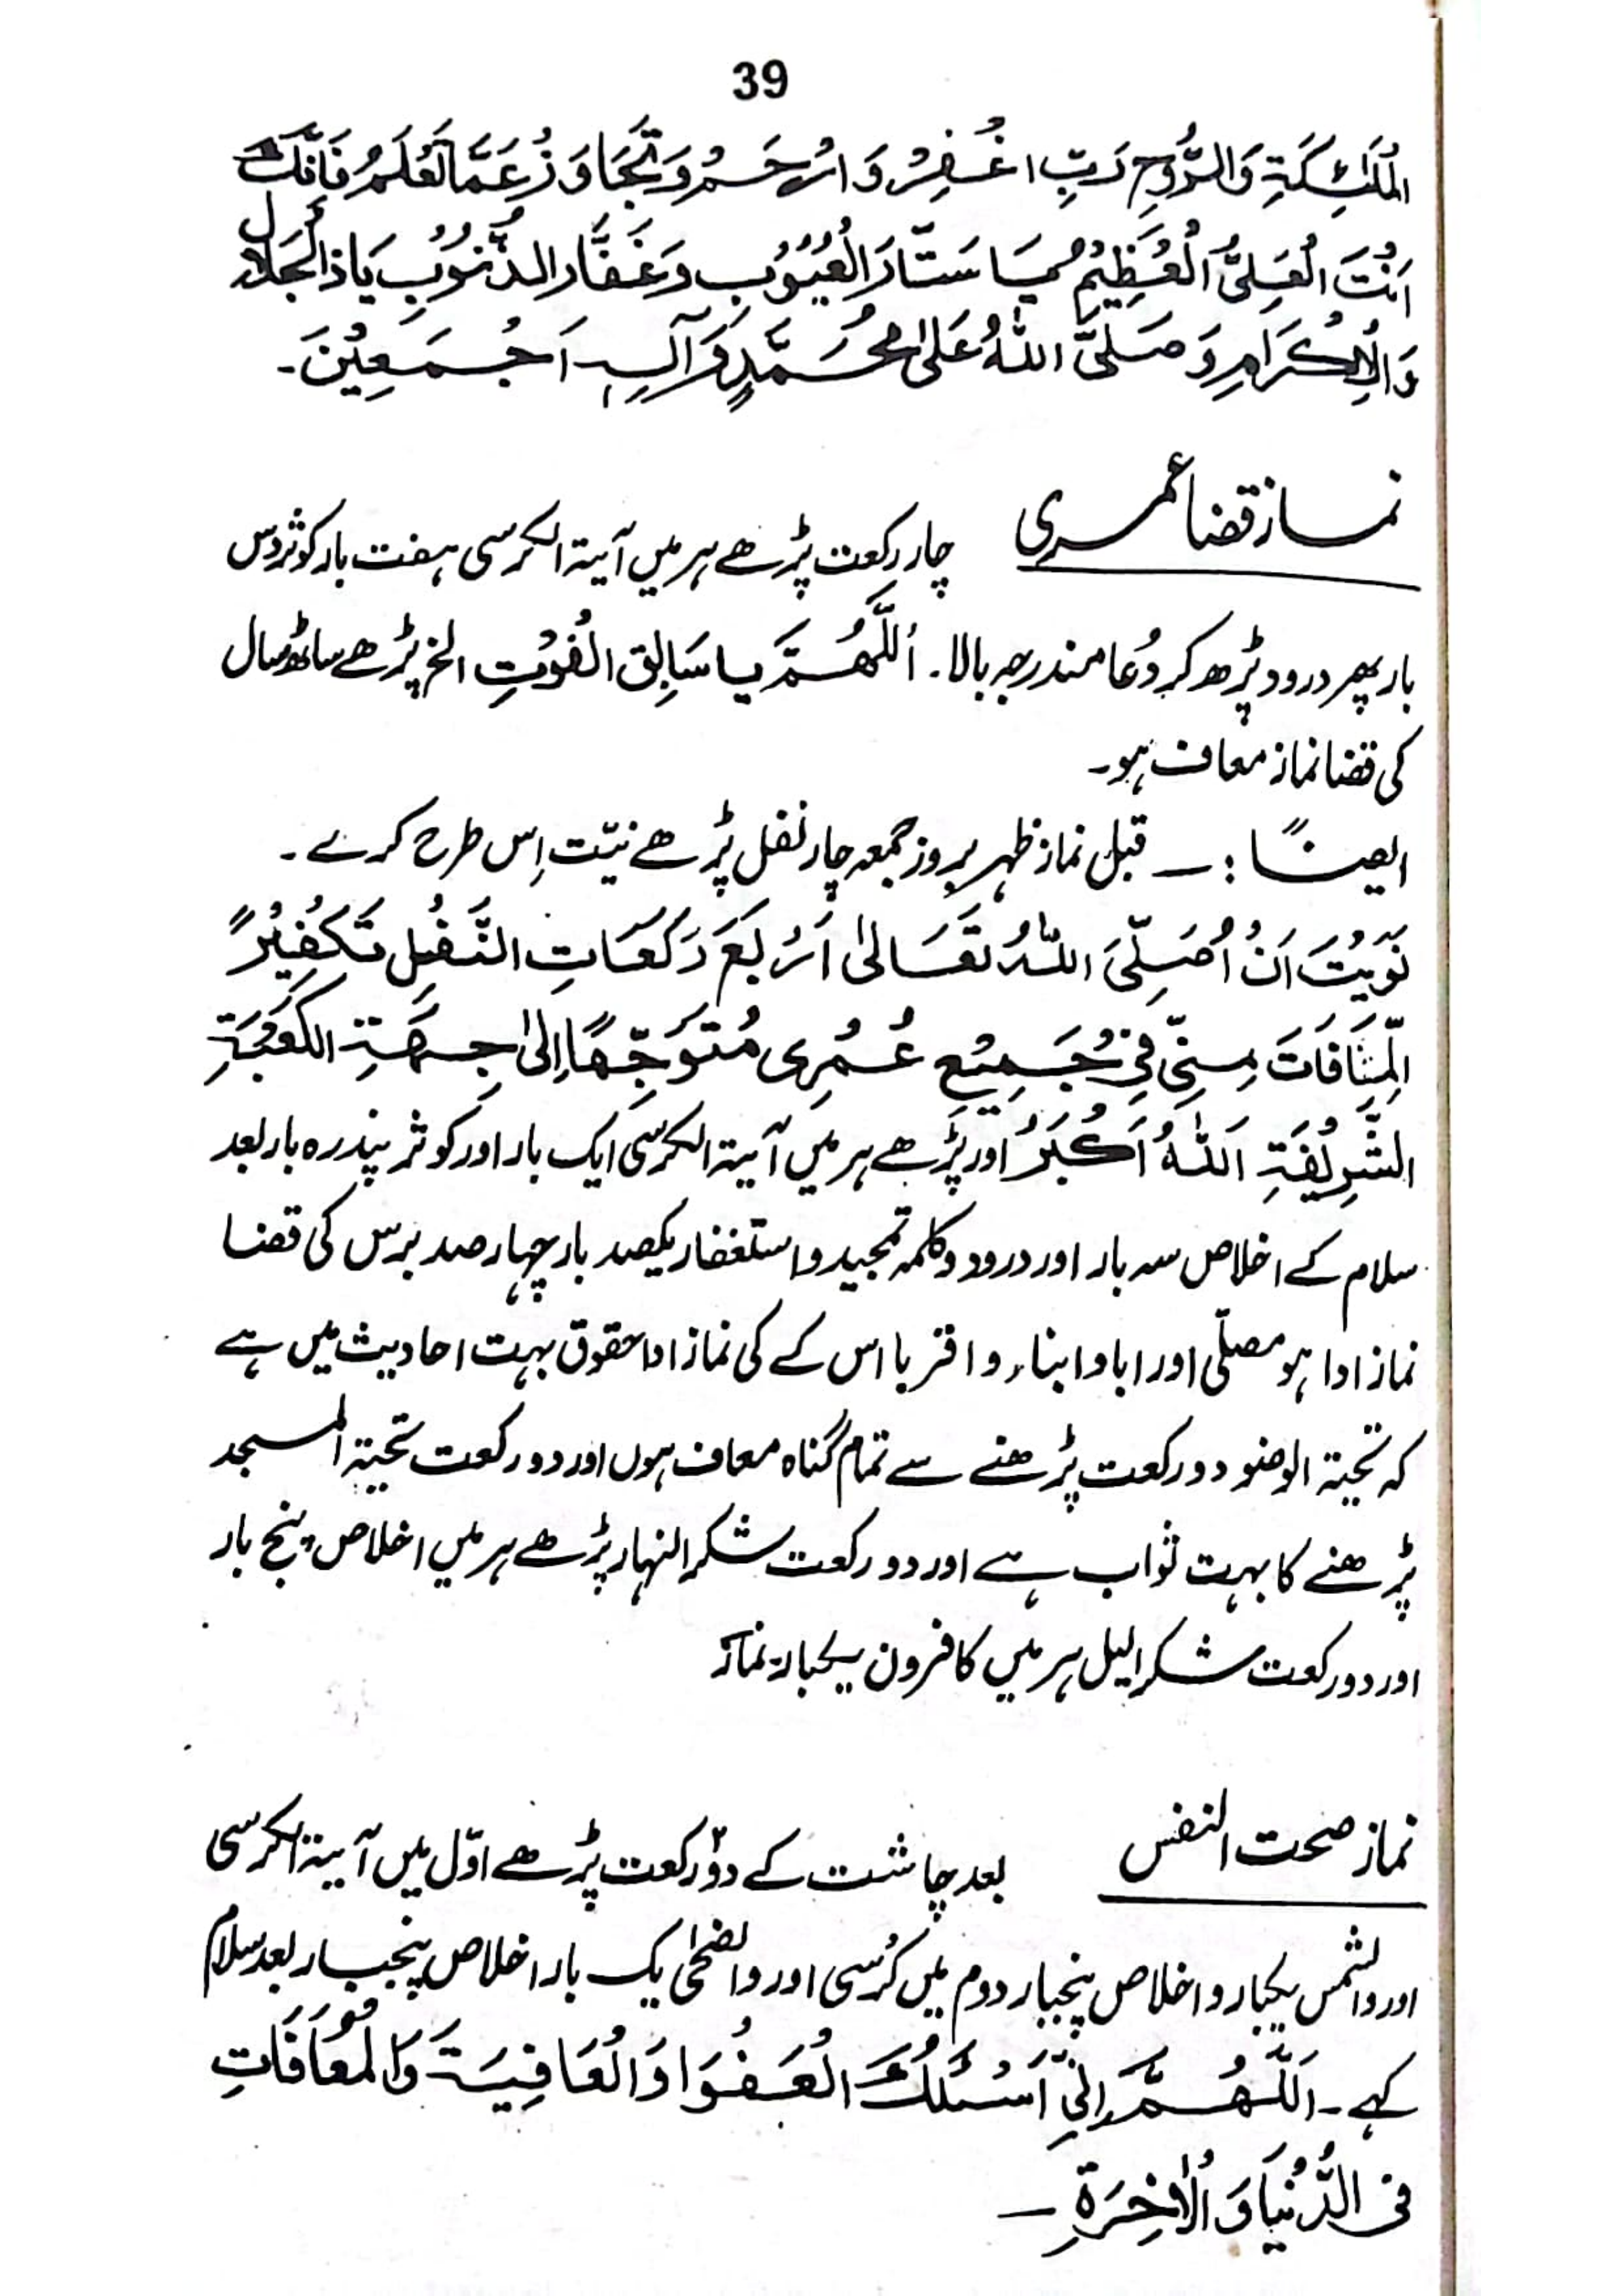 39
الْمَلٰئِکَۃِ وَالرُّوْحِ رَبِّ اغْفِرْ وَ ارْحَمْ وَ تَجَاوَزْ عَمَّا تَعْلَمُ فَاِنَّکَ
اَنْتَ الْعَلِیُّ الْعَظِیْمُ یَا سَتَّارَ الْعُیُوْبِ وَ غَفَّارَ الذُّنُوْبِ یَا ذَالْجَلَالِ
وَالْاِکْرَامِ وَ صَلَّی اللّٰہُ عَلٰی مُحَمَّدٍ وَّ آلِہٖ اَجْمَعِیْنَ۔
نماز قضا عمری
چار رکعت پڑھے ہر میں آیۃ الکرسی ہفت بار کوثر دس
بار پھر درود پڑھ کر دُعا مندرجہ بالا۔ اَللّٰھُمَّ یا سَابِق الْفَوْتِ الخ پڑھے ساٹھ سال
کی قضا نماز معاف ہو۔
ایضاً :۔ قبل نماز ظہر بروز جمعہ چار نفل پڑھے نیّت اِس طرح کرے۔
نَوَیْتُ اَنْ اُصَلِّیَ اللّٰہُ تَعَالٰی اَرْبَعَ رَکَعَاتِ النَّفْلِ تَکْفِیْرً
الِّمَافَاتَ مِنِّیْ فِیْ جَمِیْعِ عُمْرِی مُتَوَجِّھًا اِلٰی جِھَۃِ الْکَعْبَۃِ
الشَّرِیْفَۃِ اَللّٰہُ اَکْبَرُ اور پڑھے ہر میں آیۃ الکرسی ایک بار اور کوثر پندرہ بار بعد
سلام کے اخلاص سہ بار اور درود و کلمہ تمجید و استغفار یکصد بار چہار صد برس کی قضا
نماز ادا ہو مصلّی اور ابا و ابناء و اقربا اس کے کی نماز ادا حقوق بہت احادیث میں ہے
کہ تحیۃ الوضو دو رکعت پڑھنے سے تمام گناہ معاف ہوں اور دو رکعت تحیۃ المسجد
پڑھنے کا بہت ثواب ہے اور دو رکعت شکر النہار پڑھے ہر میں اخلاص پنج بار
اور دو رکعت شکر الیل ہر میں کافرون یکبار نماز
نماز صحت النفس
بعد چاشت کے دوّ رکعت پڑھے اوّل میں آیۃ الکرسی
اور والشمس یکبار و اخلاص پنجبار دوم میں کُرسی اور والضحٰی یک بار اخلاص پنجبار بعد سلام
کہے۔ اَللّٰھُمَّ اِنِّیْ اَسْئَلُکَ الْعَفْوَا وَالْعَافِیَۃَ وَالْمُعَافَاتِ
فی الدُّنْیَا وَ الْاٰخِرَۃِ ۔